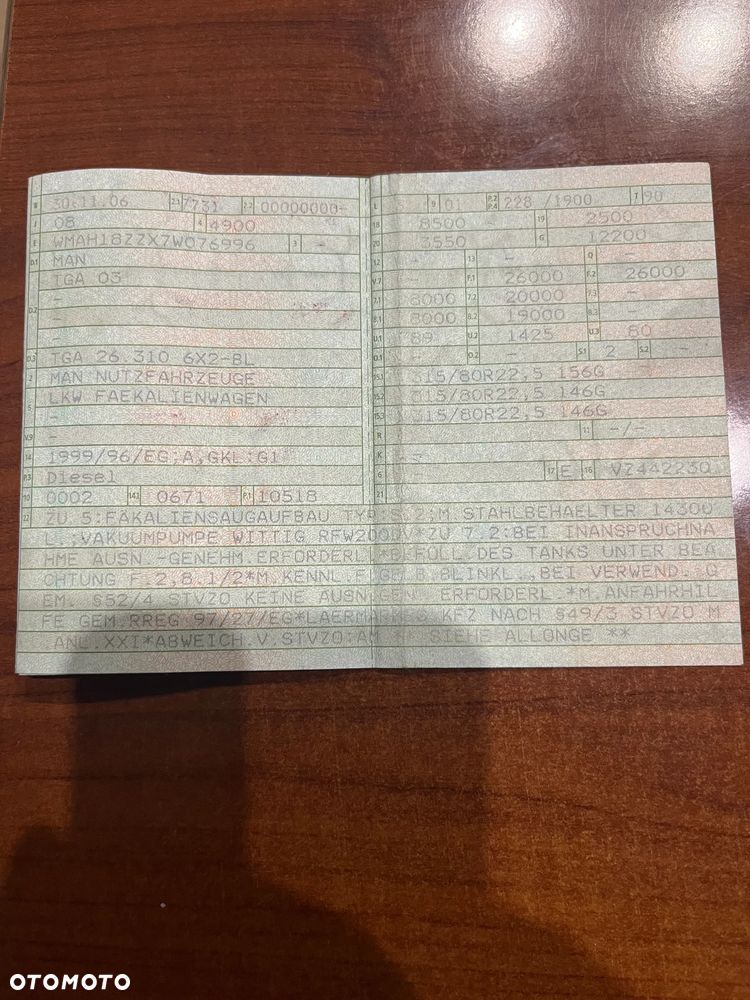 B 30.11.06 2.1 7731 2.2 00000000-
J 08 4 4900
E WMAH18ZZX7W076996 3 -
D.1 MAN
TGA 03
-
D.2 -
-
D.3 TGA 26.310 6X2-BL
2 MAN NUTZFAHRZEUGE
5 LKW FAEKALIENWAGEN
-
V.9 -
14 1999/96/EG;A,GKL:G1
P.3 Diesel
10 0002 14.1 0671 P.1 10518
L 3 9 01 P.2 P.4 228 /1900 T 90
18 8500 - 19 2500
20 3550 - G 12200-
12 - 13 - Q -
V.7 - F.1 26000 F.2 26000
7.1 8000 7.2 20000 7.3 -
8.1 8000 8.2 19000 8.3 -
U.1 89 U.2 1425 U.3 80
O.1 - O.2 - S.1 2 S.2 -
15.1 315/80R22,5 156G
15.2 315/80R22,5 146G
15.3 315/80R22,5 146G
R - 11 -/-
K -
6 - 17 E 16 VZ442230
21 -
22 ZU 5:FAKALIENSAUGAUFBAU TYP S 2;M STAHLBEHAELTER 14300
L.;VAKUUMPUMPE WITTIG RFW200DV*ZU 7.2:BEI INANSPRUCHNA
HME AUSN.-GENEHM.ERFORDERL.*B.FÜLL.DES TANKS UNTER BEA
CHTUNG F.2,8.1/2*M.KENNL.F.GELB.BLINKL.,BEI VERWEND. G
EM. §52/4 STVZO KEINE AUSN.GEN. ERFORDERL.*M.ANFAHRHIL
FE GEM.RREG 97/27/EG*LAERMARMES KFZ NACH §49/3 STVZO M
ANL.XXI*ABWEICH.V.STVZO:AM ** SIEHE ALLONGE **
OTOMOTO